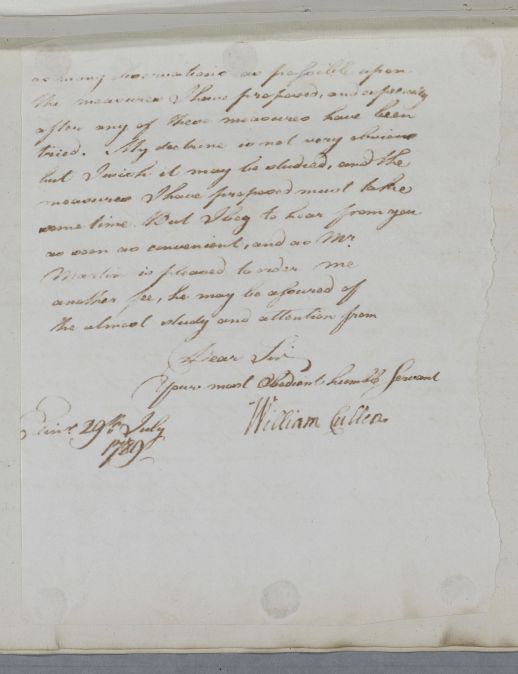 as many observations as possible upon
the measures I have proposed, and especially
after any of these measures have been
tried. My doctrine is not very obvious
but I wish it may be studied, and the
measures I have proposed must take
some time. But I beg to hear from you
as soon as convenient, and as Mr.
Martin is pleased to order me
another fee, he may be assured of
the utmost study and attention from
Dear Sir
Your most Obedient humble Servant
William Cullen
Edinr 29th July
1789